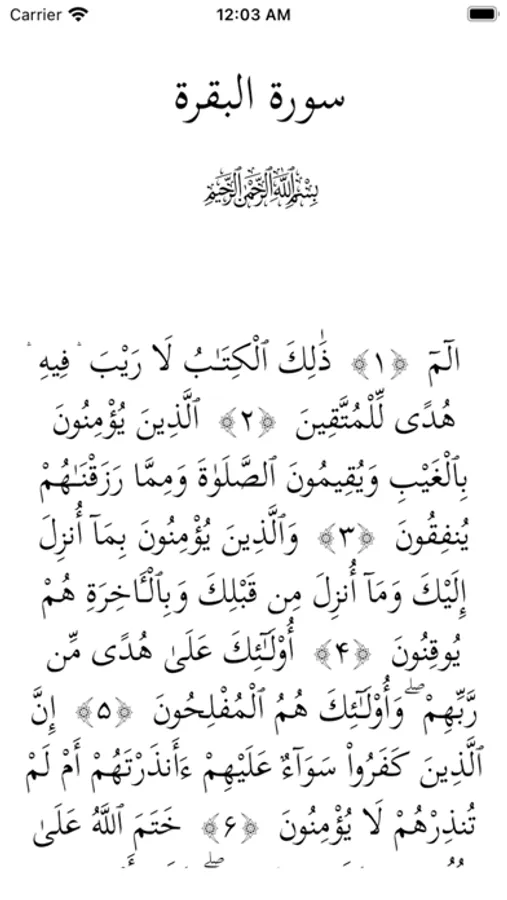 Carrier 12:03 AM
سورة البقرة
بِسْمِ ٱللَّهِ ٱلرَّحْمَٰنِ ٱلرَّحِيمِ
الٓمٓ ﴿۱﴾ ذَٰلِكَ ٱلْكِتَـٰبُ لَا رَيْبَ ۛ فِيهِ ۛ
هُدًى لِّلْمُتَّقِينَ ﴿۲﴾ ٱلَّذِينَ يُؤْمِنُونَ
بِٱلْغَيْبِ وَيُقِيمُونَ ٱلصَّلَوٰةَ وَمِمَّا رَزَقْنَـٰهُمْ
يُنفِقُونَ ﴿۳﴾ وَٱلَّذِينَ يُؤْمِنُونَ بِمَآ أُنزِلَ
إِلَيْكَ وَمَآ أُنزِلَ مِن قَبْلِكَ وَبِٱلْـَٔاخِرَةِ هُمْ
يُوقِنُونَ ﴿۴﴾ أُو۟لَـٰٓئِكَ عَلَىٰ هُدًى مِّن
رَّبِّهِمْ ۖ وَأُو۟لَـٰٓئِكَ هُمُ ٱلْمُفْلِحُونَ ﴿۵﴾ إِنَّ
ٱلَّذِينَ كَفَرُوا۟ سَوَآءٌ عَلَيْهِمْ ءَأَنذَرْتَهُمْ أَمْ لَمْ
تُنذِرْهُمْ لَا يُؤْمِنُونَ ﴿۶﴾ خَتَمَ ٱللَّهُ عَلَىٰ